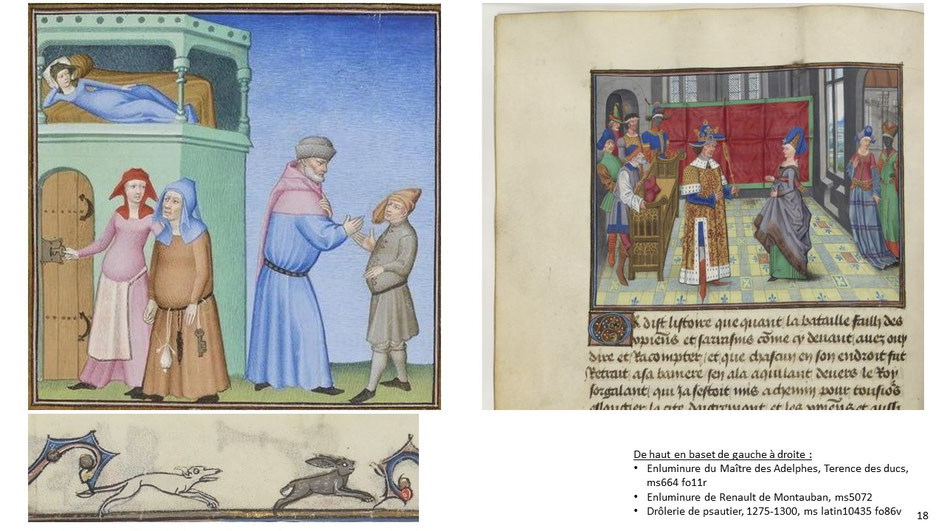 Or dist listoire que quant la bataille failli des
et sarrasins cōme cy devant avez ouy
dire et Racompter / et que chascun en son endroit fut
Retrait a sa baniere sen ala aquilant devers le Roy
sorgalant, qui Ja sestoit mis a chemin pour
De haut en baset de gauche à droite :
• Enluminure du Maître des Adelphes, Terence des ducs,
ms664 fo11r
• Enluminure de Renault de Montauban, ms5072
• Drôlerie de psautier, 1275-1300, ms latin10435 fo86v
18